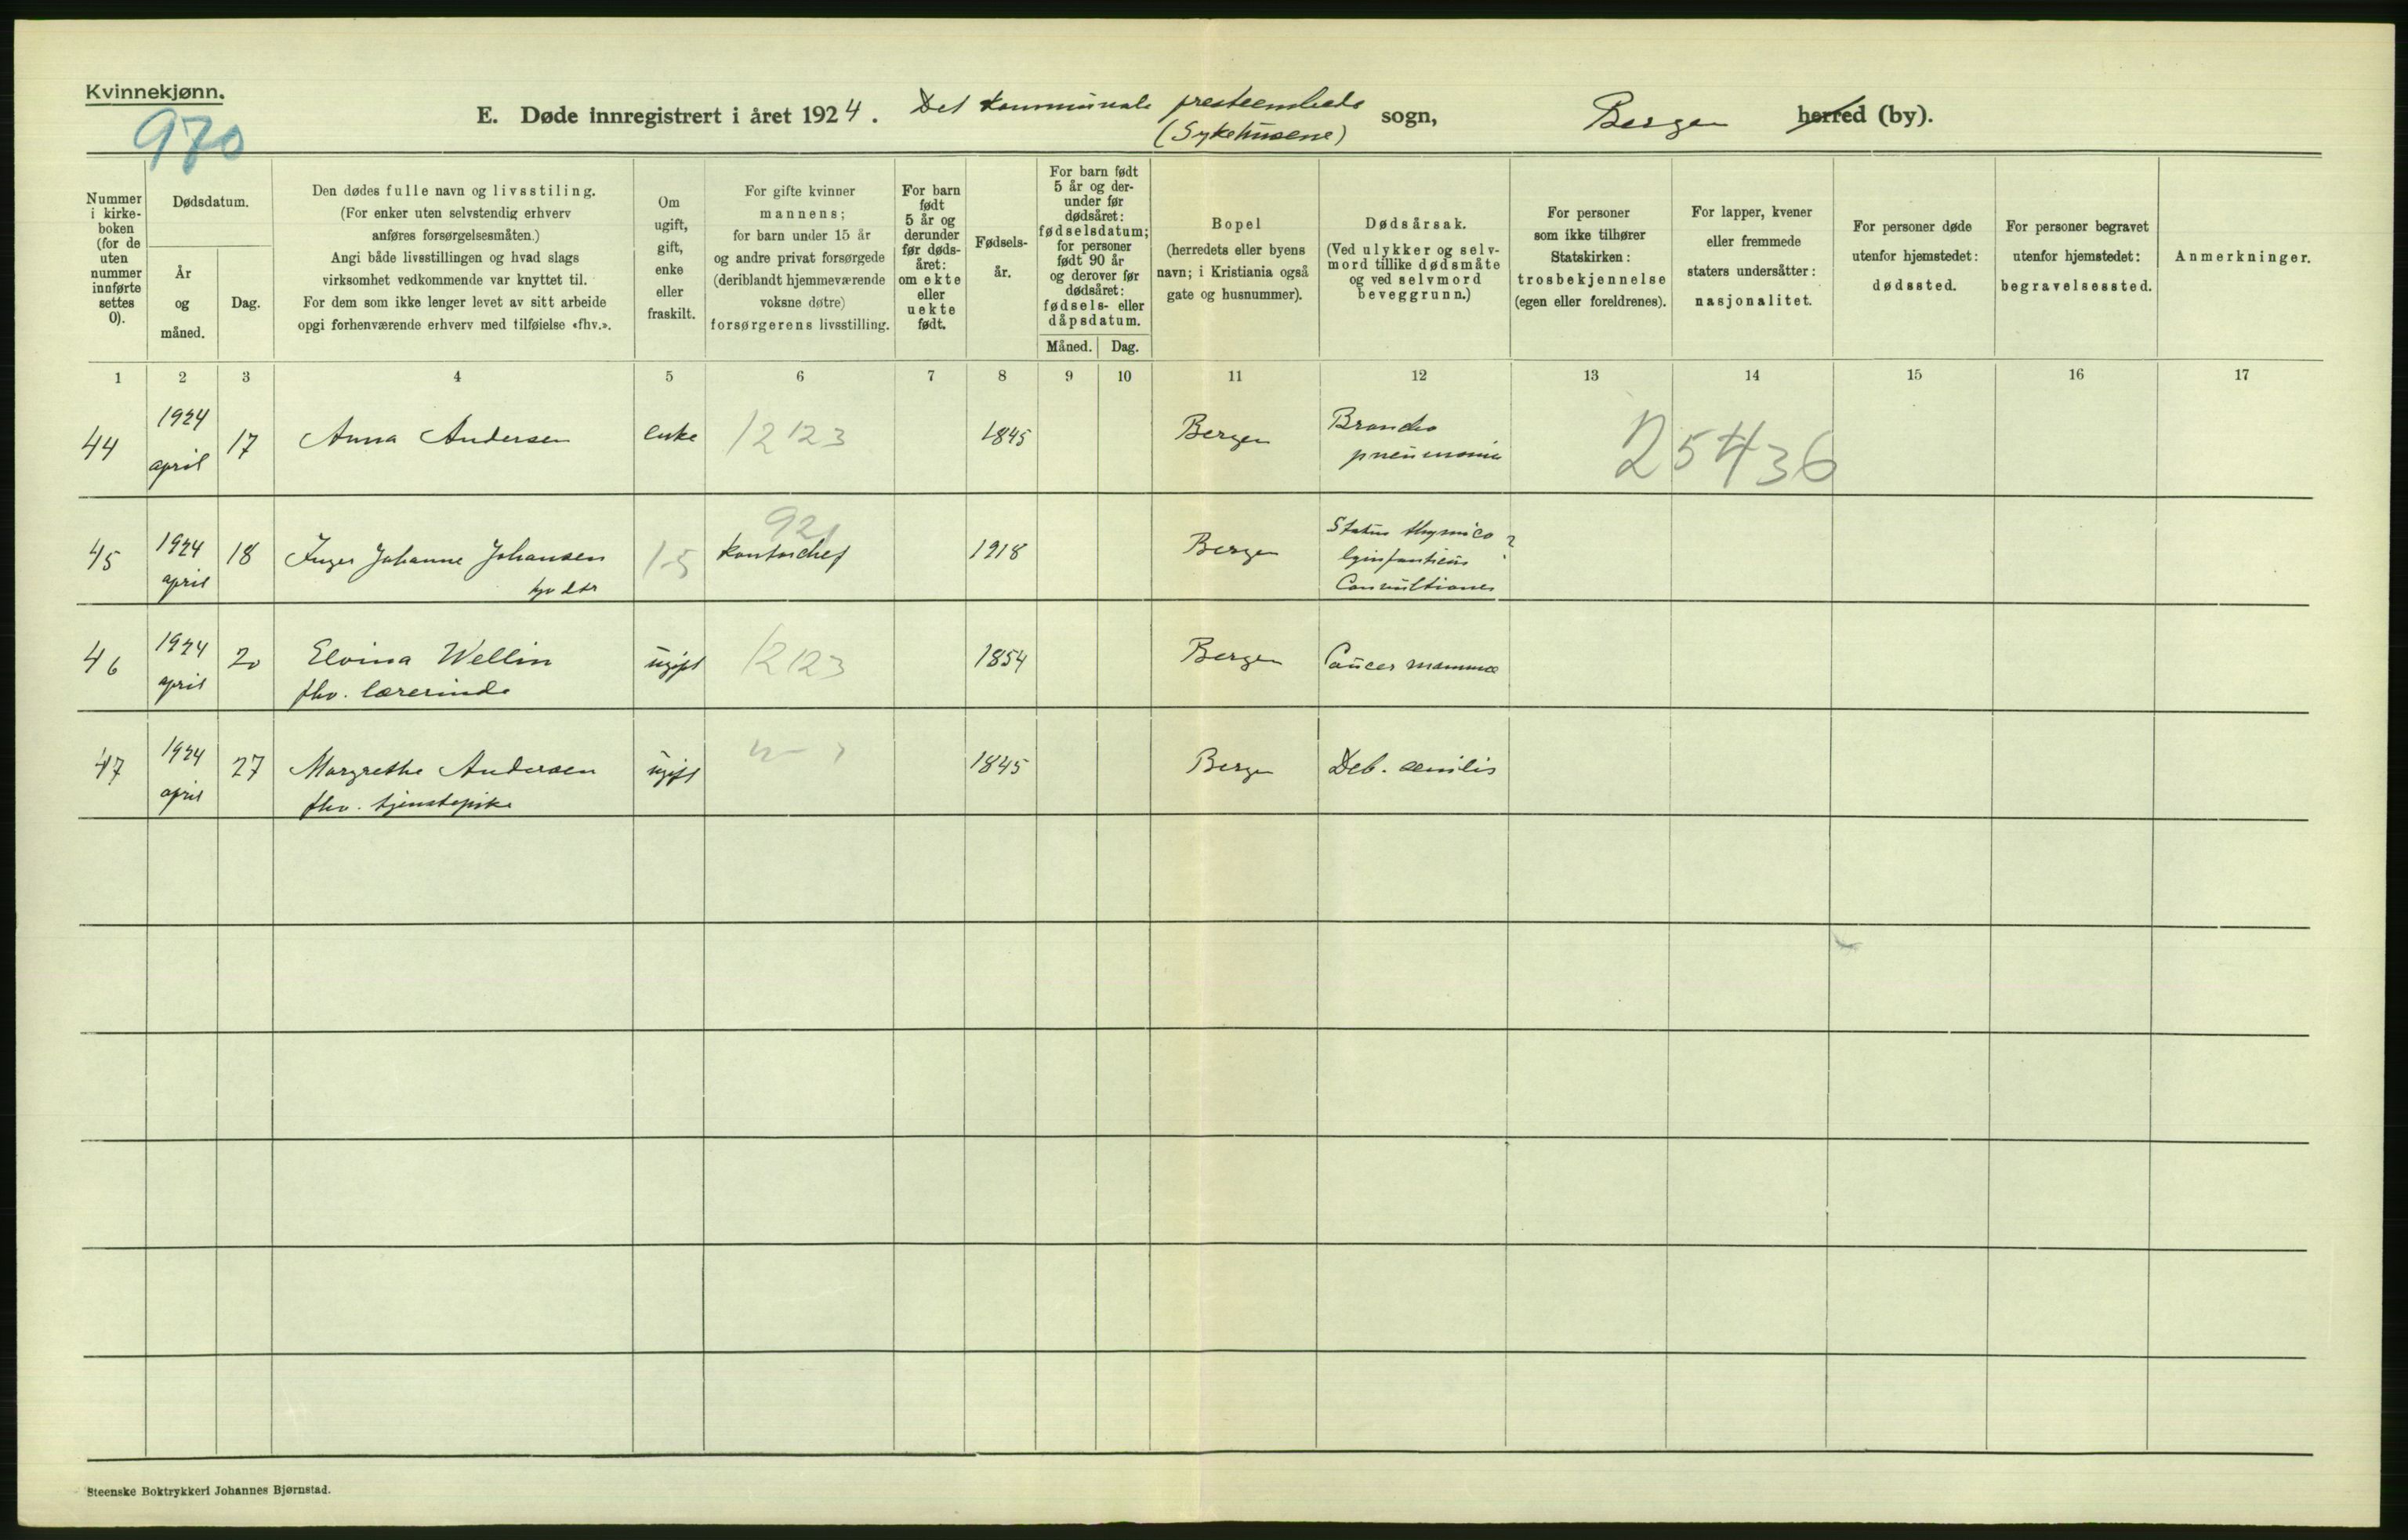 Kvinnekjønn.
970
E. Døde innregistrert i året 1924. Det kommunale presteembede (Sykehusene) sogn, Bergen herred (by).
Nummer i kirkeboken (for de uten nummer innførte settes 0).
Dødsdatum.
År og måned.
Dag.
Den dødes fulle navn og livsstiling.
(For enker uten selvstendig erhverv
anføres forsørgelsesmåten.)
Angi både livsstillingen og hvad slags
virksomhet vedkommende var knyttet til.
For dem som ikke lenger levet av sitt arbeide
opgi forhenværende erhverv med tilføielse «fhv.».
Om ugift, gift, enke eller fraskilt.
For gifte kvinner
mannens;
for barn under 15 år
og andre privat forsørgede
(deriblandt hjemmeværende
voksne døtre)
forsørgerens livsstilling.
For barn født 5 år og derunder før dødsåret: om ekte eller uekte født.
Fødselsår.
For barn født 5 år og derunder før dødsåret: fødselsdatum; for personer født 90 år og derover før dødsåret: fødsels- eller dåpsdatum.
Måned. Dag.
Bopel
(herredets eller byens
navn; i Kristiania også
gate og husnummer).
Dødsårsak.
(Ved ulykker og selvmord tillike dødsmåte
og ved selvmord
beveggrunn.)
For personer
som ikke tilhører
Statskirken:
trosbekjennelse
(egen eller foreldrenes).
For lapper, kvener
eller fremmede
staters undersåtter:
nasjonalitet.
For personer døde
utenfor hjemstedet:
dødssted.
For personer begravet
utenfor hjemstedet:
begravelsessted.
Anmerkninger.
1 2 3 4 5 6 7 8 9 10 11 12 13 14 15 16 17
44 1924 april 17 Anna Andersen enke 12123 1845 Bergen Broncho pneumonia 25436
45 1924 april 18 Inger Johanne Johansen 1-5 921 kontorchef 1918 Bergen Status thymico ? Convultiones
46 1924 april 20 Elvina Wellin ugift 12123 1854 Bergen Cancer mammæ
fhv. lærerinde
47 1924 april 27 Margrethe Andersen ugift 1845 Bergen Deb. senilis
fhv. tjenestepike
Steenske Boktrykkeri Johannes Bjørnstad.